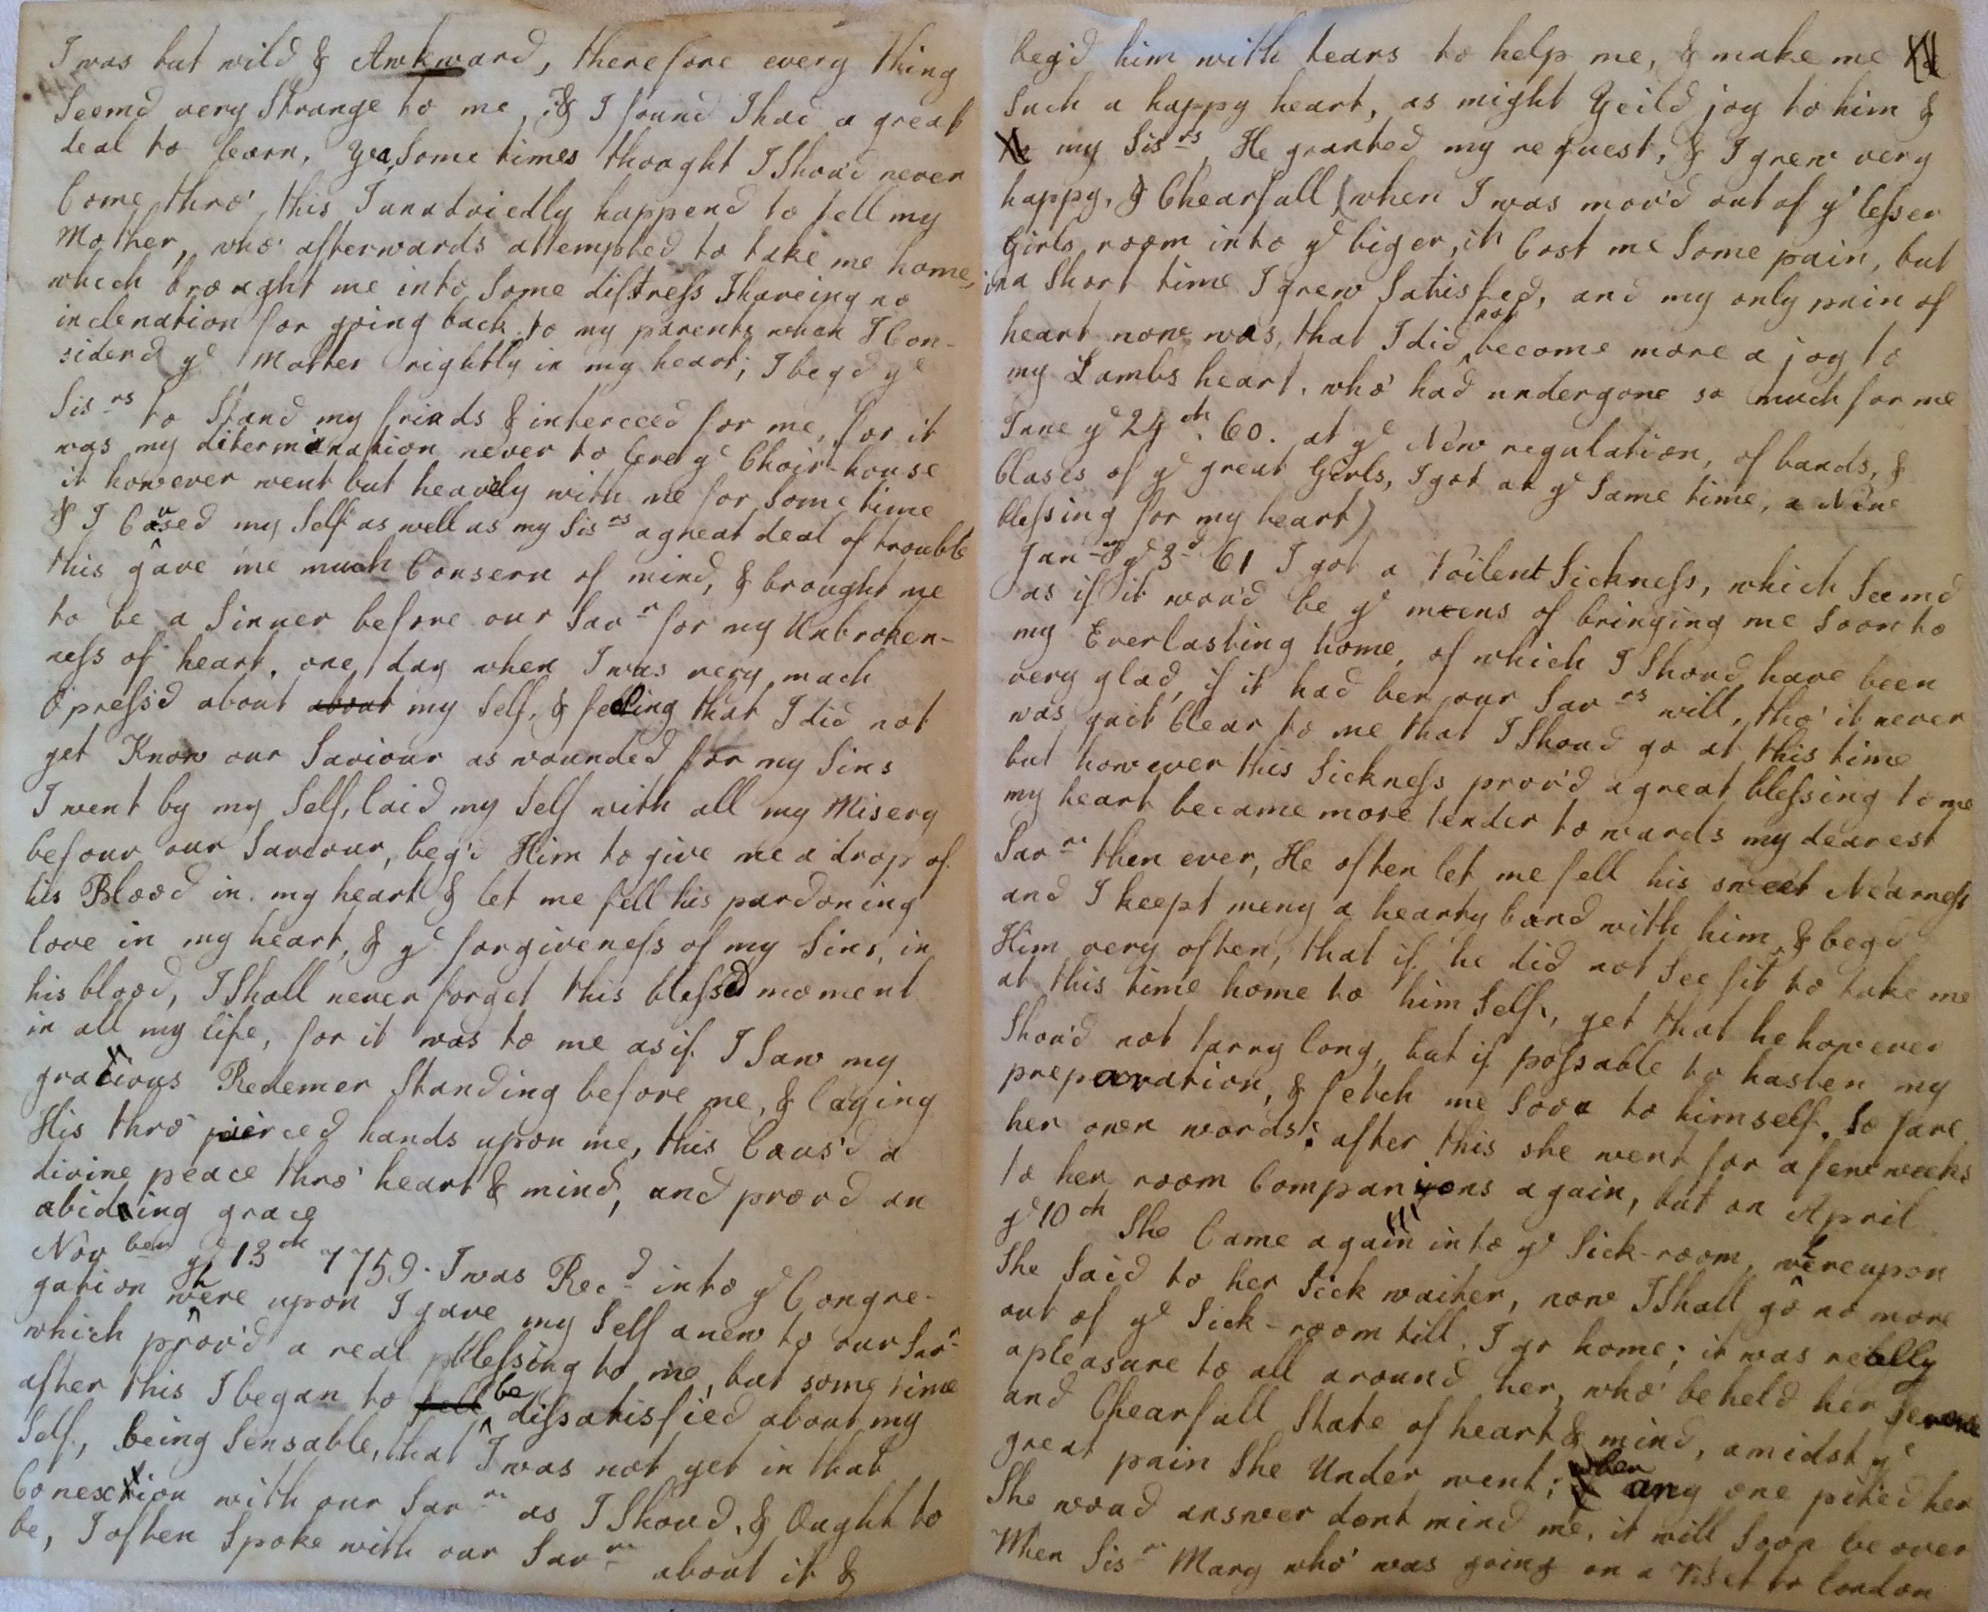 I was but wild & Awkward, therefore every thing
Seemd very Strange to me, & I found I had a great
deal to learn, Yea Some times thought I Shoud never
Come thro' this I unadviedly happend to tell my
Mother, who' afterwards attempted to take me home,
which brought me into Some distress I haveing no
inclenation for going back to my parents when I Con-
siderd ye Matter rightly in my heart; I beg'd ye
Sisrs to Stand my friads & interceed for me, for it
was my ditermination never to leve ye Choir-house
it however went but heavily with me for Some time
& I Caused my Self as well as my Sisrs a great deal of trouble
this gave me much Consern of mind, & brought me
to be a Sinner before our Savr for my Unbroken-
ness of heart. one day when I was very much
Opress'd about about my Self, & feeling that I did not
yet Know our Saviour as wounded for my Sins
I went by my Self, laid my Self with all my Misery
befour our Saviour, beg'd Him to give me a drop of
his Blood in my heart & let me fell his pardoning
love in my heart, & ye forgiveness of my Sins, in
his blood, I Shall never forget this blessd moment
in all my life, for it was to me as if I Saw my
gracious Redemer Standing before me, & laying
His thro' pierced hands upon me, this Caus'd a
divine peace thro' heart & mind, and proov'd an
abiding grace
Novber ye 13th 1759. I was Recd into ye Congre-
gation where upon I gave my Self anew to our Savr
which prov'd a real blessing to me, but some time
after this I began to fell be dissatisfied about my
Self, being Sensable, that I was not yet in that
Conexion with our Savr as I Shoud, & Ought to
be, I often Spoke with our Savr about it &
beg'd him with tears to help me, & make me
Such a happy heart, as might Yeild joy to him &
my Sisrs, He granted my request, & I grew very
happy, & Chearfull (when I was mov'd out of ye lesser
Girls room into ye biger, it Cost me Some pain, but
in a Short time I grew Satisfied, and my only pain of
heart now was, that I did not become more a joy to
my Lambs heart, who' had undergone so much for me
June ye 24th. 60. at ye New regulation, of bands, &
Clases of ye great Girls, I got at ye Same time, a New
blessing for my heart)
Janry ye 3d 61 I got a Voilent Sickness, which Seemd
as if it wou'd be ye meens of bringing me Soon to
my Everlasting home, of which I Shoud have been
very glad, if it had ben our Savrs will, tho' it never
was quit Clear to me that I Shoud go at this time
but however this Sickness prov'd a great blessing to me
my heart became more tender towards my dearest
Savr then ever, He often let me fell his sweet Nearness
and I keept meny a hearty band with him, & beg'd
Him very often, that if he did not See fit to take me
at this time home to him Self, yet that he however
Shou'd not tarry long, but if possable to hasten my
preparation, & fetch me Soon to himself. So fare
her own words: after this she went for a few weeks
to her room Companions again, but on April
ye 10th She Came again into ye Sick-room, whereupon
She Said to her Sick waiter, now I Shall go no more
out of ye Sick-room till I go home; it was really
a pleasure to all around her, who' beheld her Serene
and Chearfull State of heart & mind, amidst ye
great pain She Under went; when any one pitied her
She woud answer dont mind me, it will Soon be over
When Sisr Mary who' was going on a Viset to London